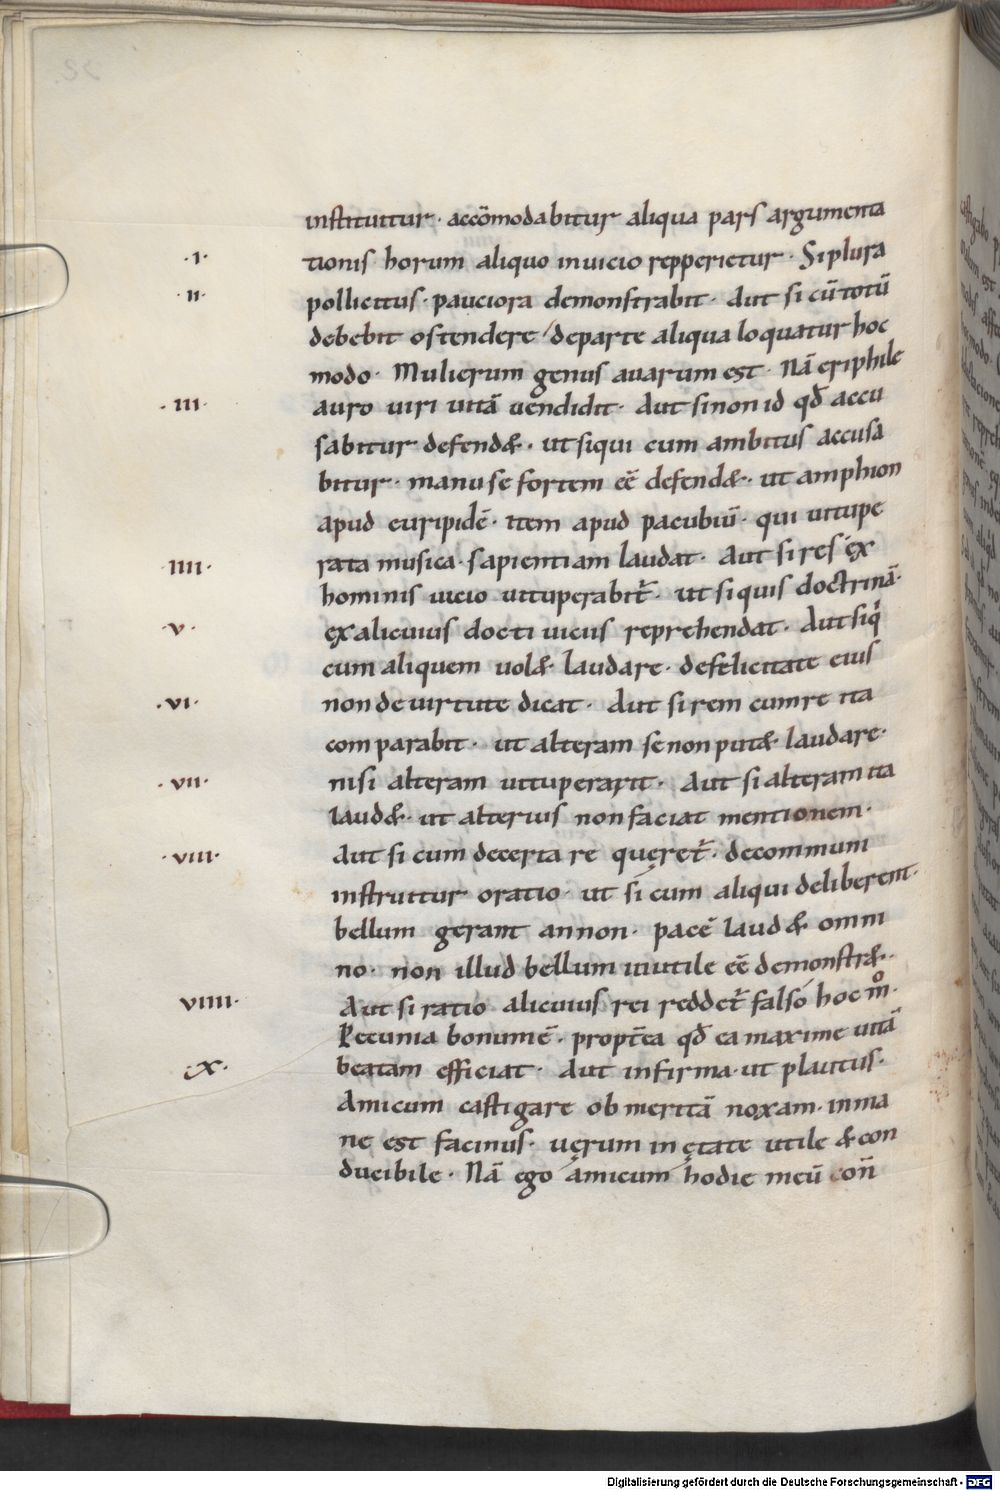 instituitur · accōmodabitur aliqua pars argumenta
·I· tionis horum aliquo inuicio repperietur · Si plura
·II· pollicitus · pauciora demonstrabit · Aut si cū totū
debebit ostendere departe aliqua loquatur hoc
modo · Mulierum genus auarum est · Nā eriphile
·III· auro uiri uitā uendidit · Aut si non id qđ accu
sabitur defend& · ut siqui cum ambitus accusa
bitur · manu se fortem eē defend& · ut amphion
apud euripidē · item apud pacubiū · qui uitupe
·IIII· rata musica · sapientiam laudat · Aut si res ex
hominis uicio uituperabit̄ · ut siquis doctrinā ·
·V· ex alicuius docti uiciis reprehendat · Aut siq̓
cum aliquem uol& laudare · defelicitate eius
·VI· non de uirtute dicat · Aut si rem cum re ita
comparabit · ut alteram se non put& laudare ·
·VII· nisi alteram uituperarit · Aut si alteram ita
laud& · ut alterius non faciat mentionem ·
·VIII· Aut si cum de certa re queret̄ · decommuni
instruitur oratio · ut si cum aliqui deliberent ·
bellum gerant annon · pacē laud& omni
no · non illud bellum inutile eē demonstr& ·
·VIIII· Aut si ratio alicuius rei reddet̄ falso hoc m̊ ·
Pecunia bonum ē · propt̄ea qđ ea maxime uitā
·X· beatam efficiat · Aut infirma · ut plautus ·
Amicum castigare ob meritā noxam · inma
ne est facinus · uerum in ętate utile & con
ducibile · Nā ego amicum hodie meū con̄
Digitalisierung gefördert durch die Deutsche Forschungsgemeinschaft - DFG